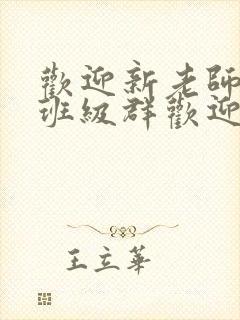 歡迎新老師
班級群歡迎
王立華